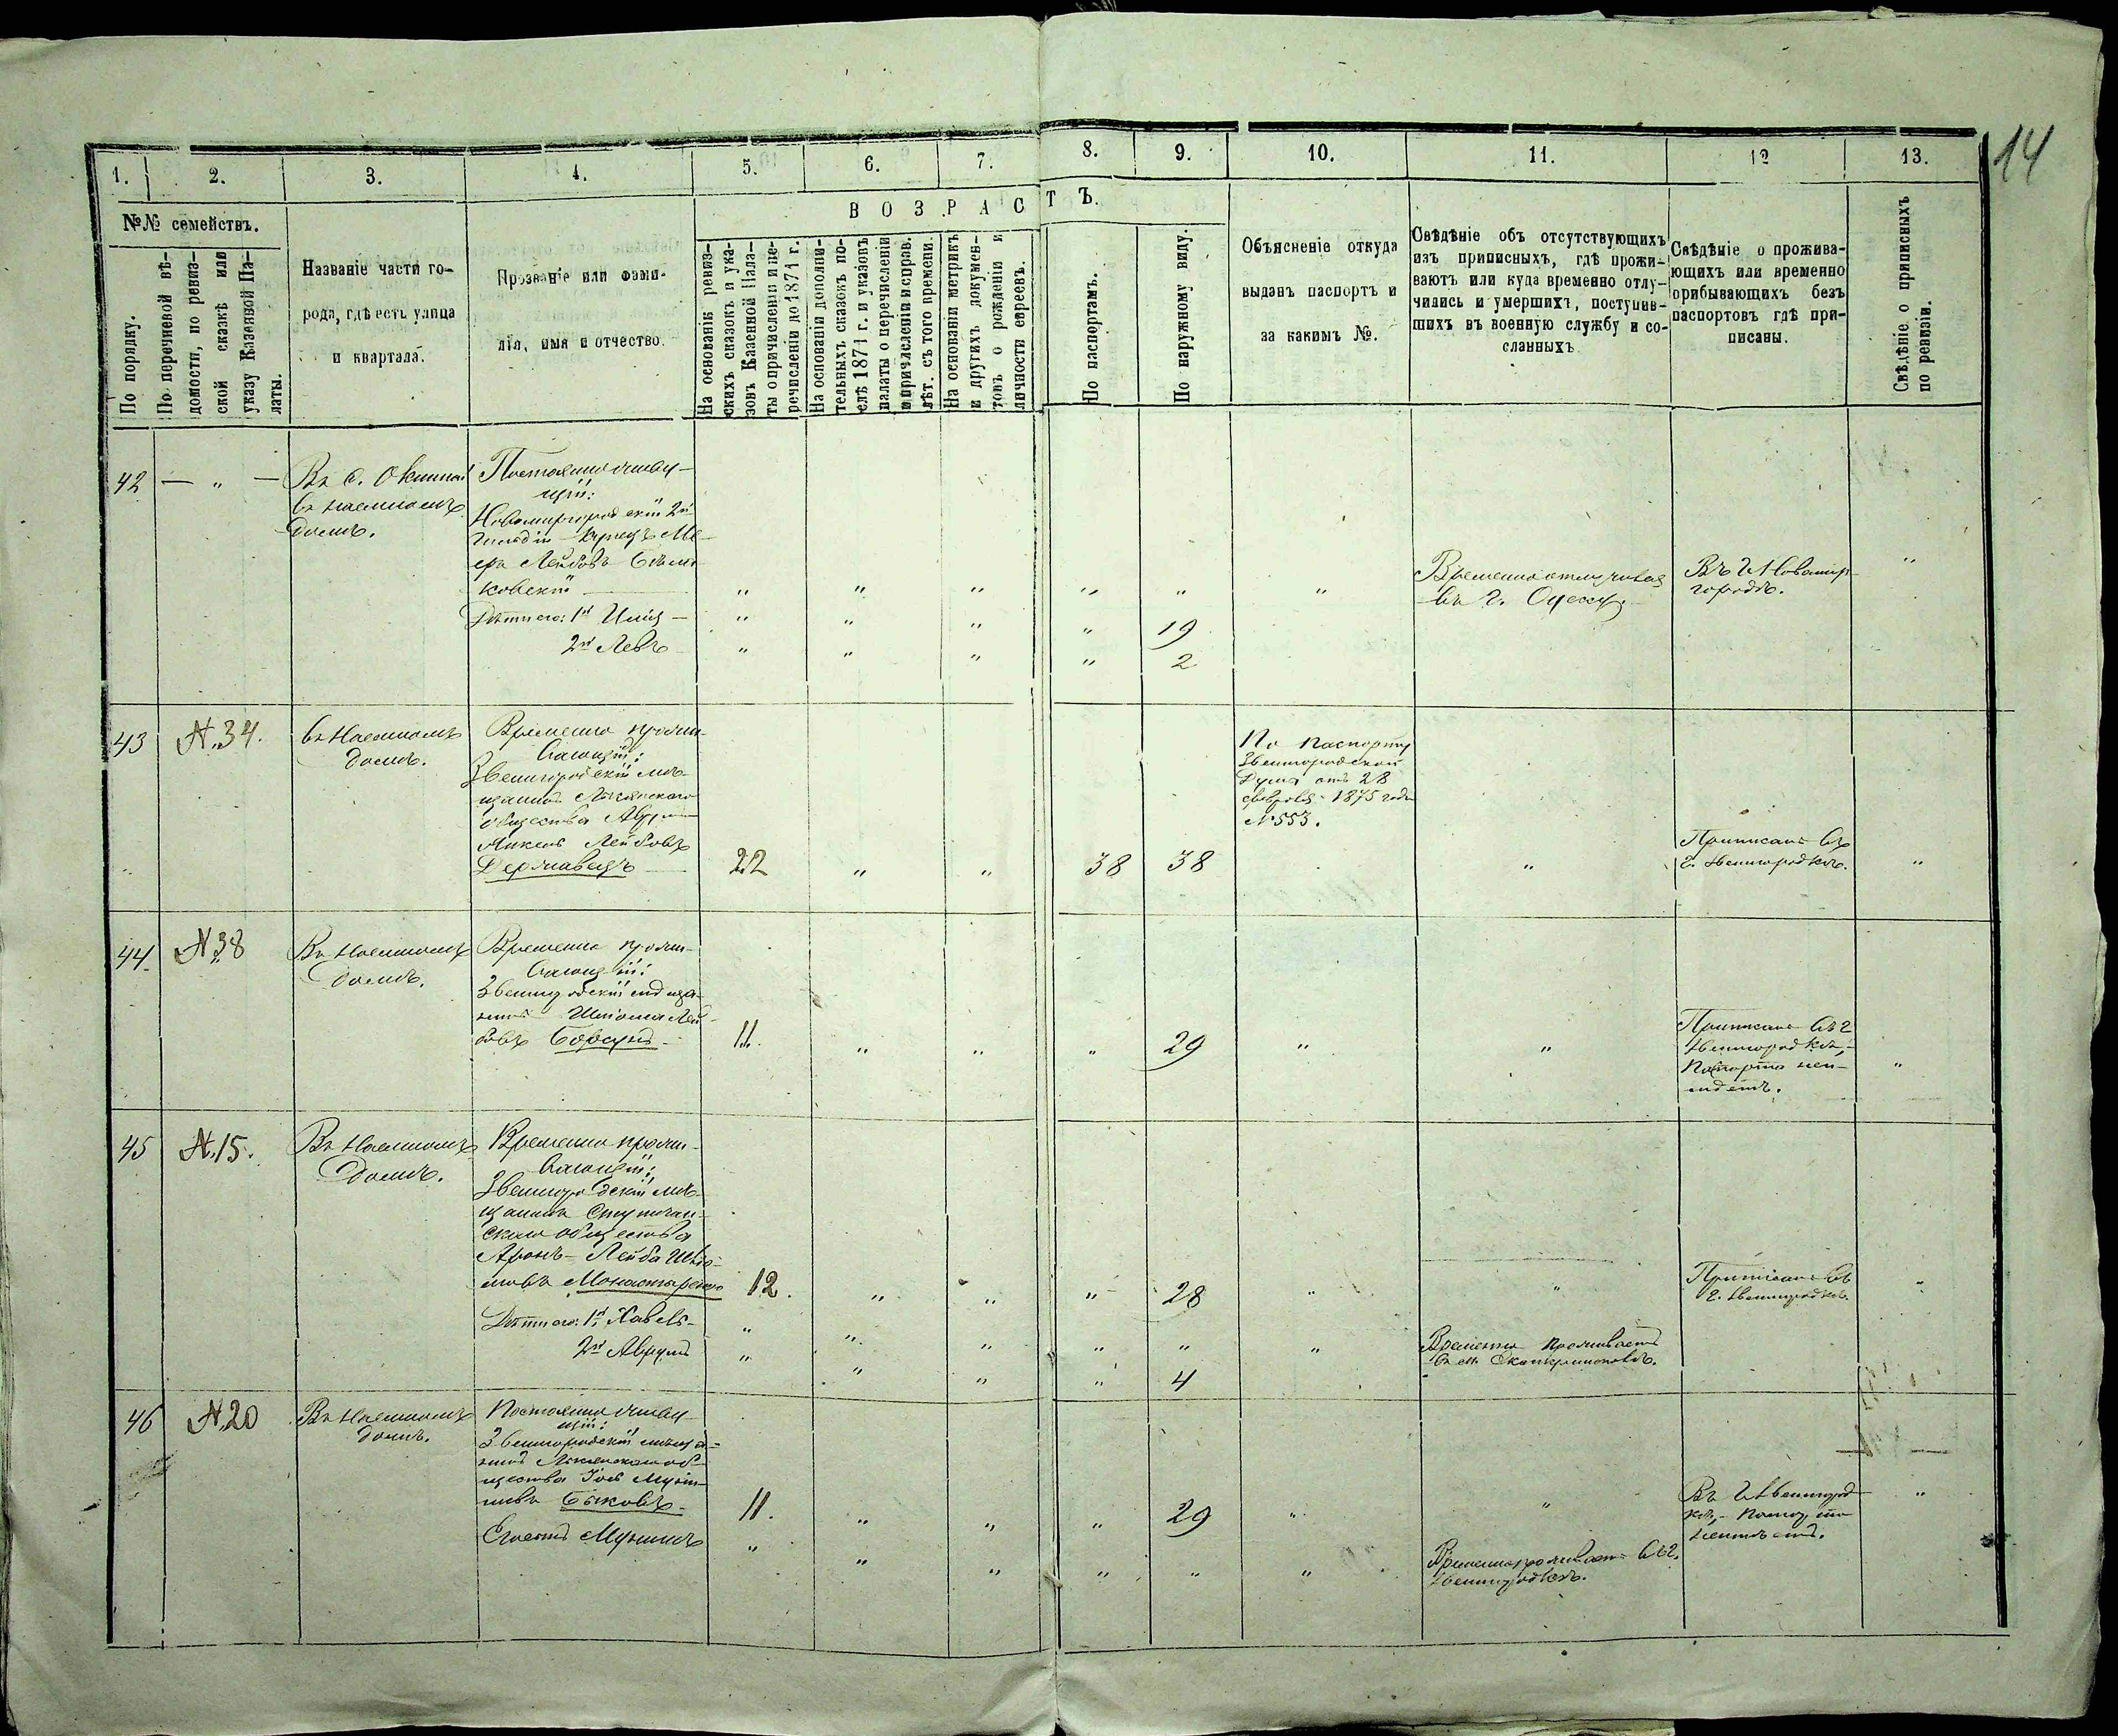 14
1. 2. 3. 4. 5. 6. 7. 8. 9. 10. 11. 12 13.
№№ семействъ.
По порядку.
По перечневой вѣ-
домости, по ревиз-
ской сказкѣ или
указу Казенной Па-
латы.
Названіе части го-
рода, гдѣ есть улица
и квартала.
Прозваніе или фами-
лія, имя и отчество.
ВОЗРАСТЪ.
На основаніи ревиз-
скихъ сказокъ и ука-
зовъ Казенной Пала-
ты о причисленіи и пе-
речисленіи до 1871 г.
На основаніи дополни-
тельныхъ сказокъ по-
слѣ 1871 г. и указовъ
палаты о перечисленіи
и причисленіи исправ.
лѣт. съ того времени.
На основаніи метрикъ
и другихъ докумен-
товъ о рожденіи и
личности евреевъ.
По паспортамъ.
По наружному виду.
Объясненіе откуда
выданъ паспортъ и
за какимъ №.
Свѣдѣніе объ отсутствующихъ
изъ приписныхъ, гдѣ прожи-
ваютъ или куда временно отлу-
чились и умершихъ, поступив-
шихъ въ военную службу и со-
сланныхъ
Свѣдѣніе о прожива-
ющихъ или временно
прибывающихъ безъ
паспортовъ гдѣ при-
писаны.
Свѣдѣніе о приписныхъ
по ревизіи.
42 — " —
Въ с. Окнино
въ наемномъ
домѣ.
Постоянно живу-
щій:
Новомиргородскій 2й
гильдіи купецъ Ме-
еръ Лейбовъ
ковскій — " " " " " "
Временно отлучился
въ г. Одессу
Въ г. Новомир-
городѣ.
"
Дѣти его: 1й — " " " " 19
2й Левъ " " " " 2
43 N.34.
въ наемномъ
домѣ.
Временно прожи-
вающій:
Звенигородскій мѣ-
щанинъ Лысянскаго
общества Аврум
Анкель Лейбовъ
Державецъ — 22 " " 38 38
По паспорту
Звенигородской
Думы отъ 28
февраля 1875 года
N 553.
"
Приписанъ въ
г. Звенигородкѣ.
"
44. N 38
Въ наемномъ
домѣ.
Временно прожи-
вающій:
Звенигородскій мѣща-
нинъ Шлома Лей-
бовъ Борсукъ. 11. " " " 29 " "
Приписанъ въ г.
Звенигородкѣ,
паспорта неи-
мѣетъ.
"
45 N.15.
Въ наемномъ
домѣ.
Временно прожи-
вающій:
Звенигородскій мѣ-
щанинъ
скаго общества
Аронъ-Лейба Шлё-
мовъ Монастырскій 12. " " " 28 " "
Приписанъ въ
г. Звенигородкѣ.
"
Дѣти его: 1й " " " " " "
Временно проживаетъ
въ
2й Аврумъ " " " " 4
46 N.20
Въ наемномъ
домѣ.
Постоянно живу-
щій:
Звенигородскій мѣща-
нинъ Лысянскаго об-
щества Іось
Быковъ. 11. " " " 29 " "
Въ г. Звенигород-
кѣ, паспорта
неимѣетъ.
"
" " " " " "
Временно проживаетъ въ г.
Звенигородкѣ.